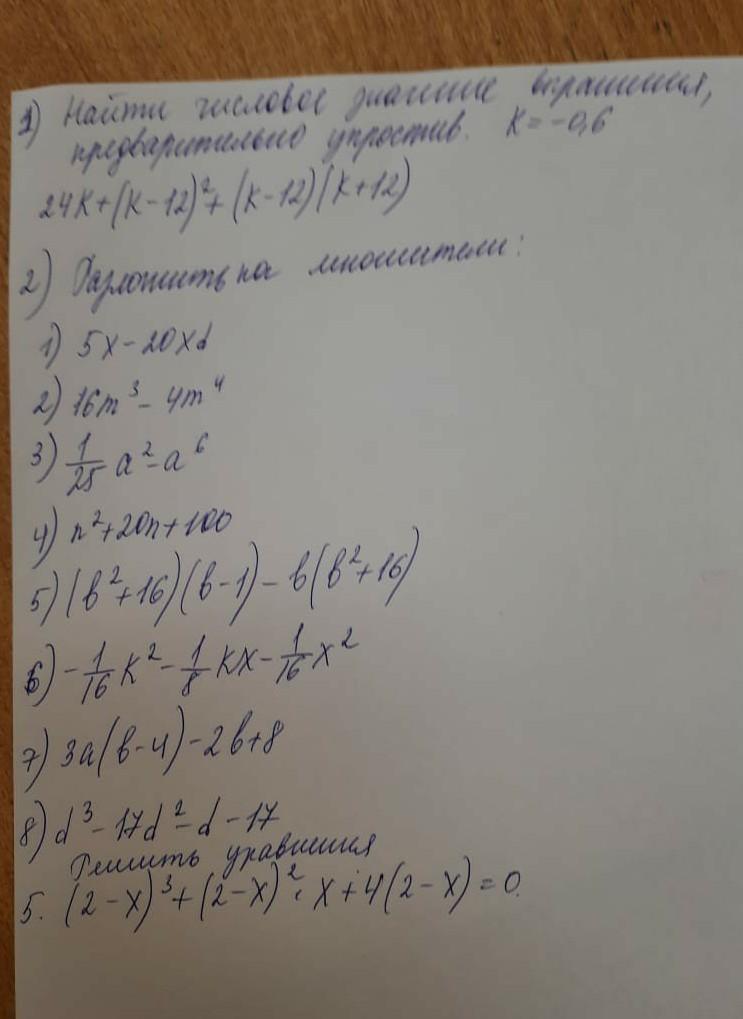 1) Найти числовое значение выражения,
предварительно упростив. K = -0,6
24K+(K-12)²+(K-12)(K+12)
2) Разложить на множители:
1) 5x-20xd
2) 16m³-4m⁴
3) 1/25 a²-a⁶
4) n²+20n+100
5) (b²+16)(b-1)-b(b²+16)
6) -1/16 K²-1/8 KX-1/16 X²
7) 3a(b-4)-2b+8
8) d³-17d²-d-17
Решить уравнения
5. (2-X)³+(2-X)²·X+4(2-X)=0.